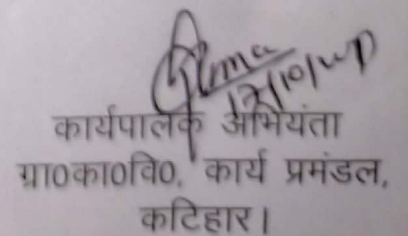 कार्यपालक अभियंता
ग्रा०का०वि०, कार्य प्रमंडल,
कटिहार।